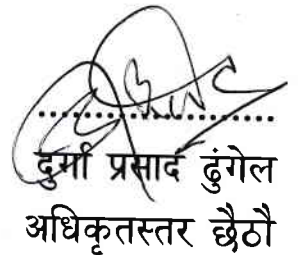 दुर्गा प्रसाद ढुंगेल
अधिकृतस्तर छैठौ